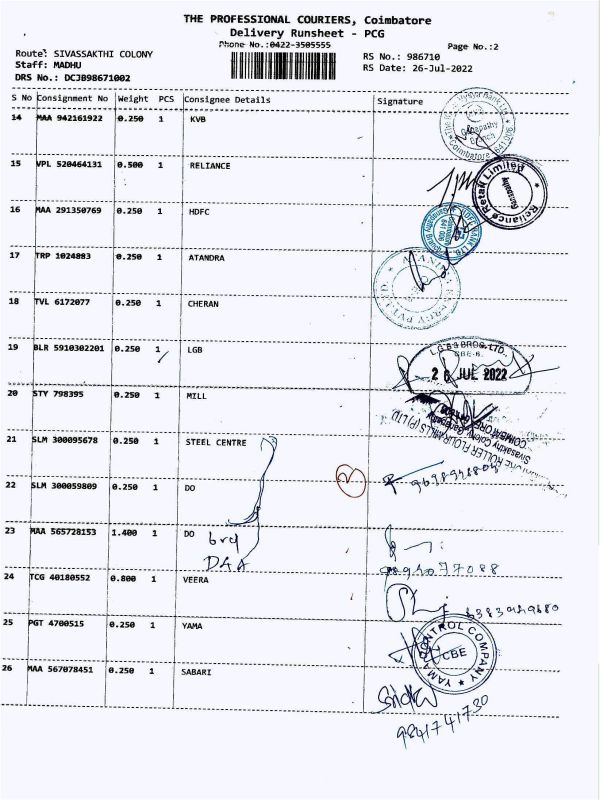 THE PROFESSIONAL COURIERS, Coimbatore
Delivery Runsheet - PCG
Phone No.:0422-3505555
Page No.:2
Route: SIVASSAKTHI COLONY
RS No.: 986710
Staff: MADHU
RS Date: 26-Jul-2022
DRS No.: DCJB98671002
S No Consignment No Weight PCS Consignee Details Signature
14 MAA 942161922 0.250 1 KVB
Ganapathy
Branch
Coimbatore 641 006
15 VPL 520464131 0.500 1 RELIANCE
Reliance Retail Limited
16 MAA 291350769 0.250 1 HDFC
HDFC BANK LTD
17 TRP 1024883 0.250 1 ATANDRA
18 TVL 6172077 0.250 1 CHERAN
19 BLR 5910302201 0.250 1 LGB
L.G.B & BROS. LTD.,
CBE-6.
26 JUL 2022
20 STY 798395 0.250 1 MILL
ROLLER FLOUR MILLS (P) LTD
Sivasakthy Colony, Ganapathy
COIMBATORE
21 SLM 300095678 0.250 1 STEEL CENTRE
22 SLM 300059809 0.250 1 DO
2
23 MAA 565728153 1.400 1 DO
24 TCG 40180552 0.800 1 VEERA
25 PGT 4700515 0.250 1 YAMA
YAMA CONTROL COMPANY
CBE
26 MAA 567078451 0.250 1 SABARI
9841741730